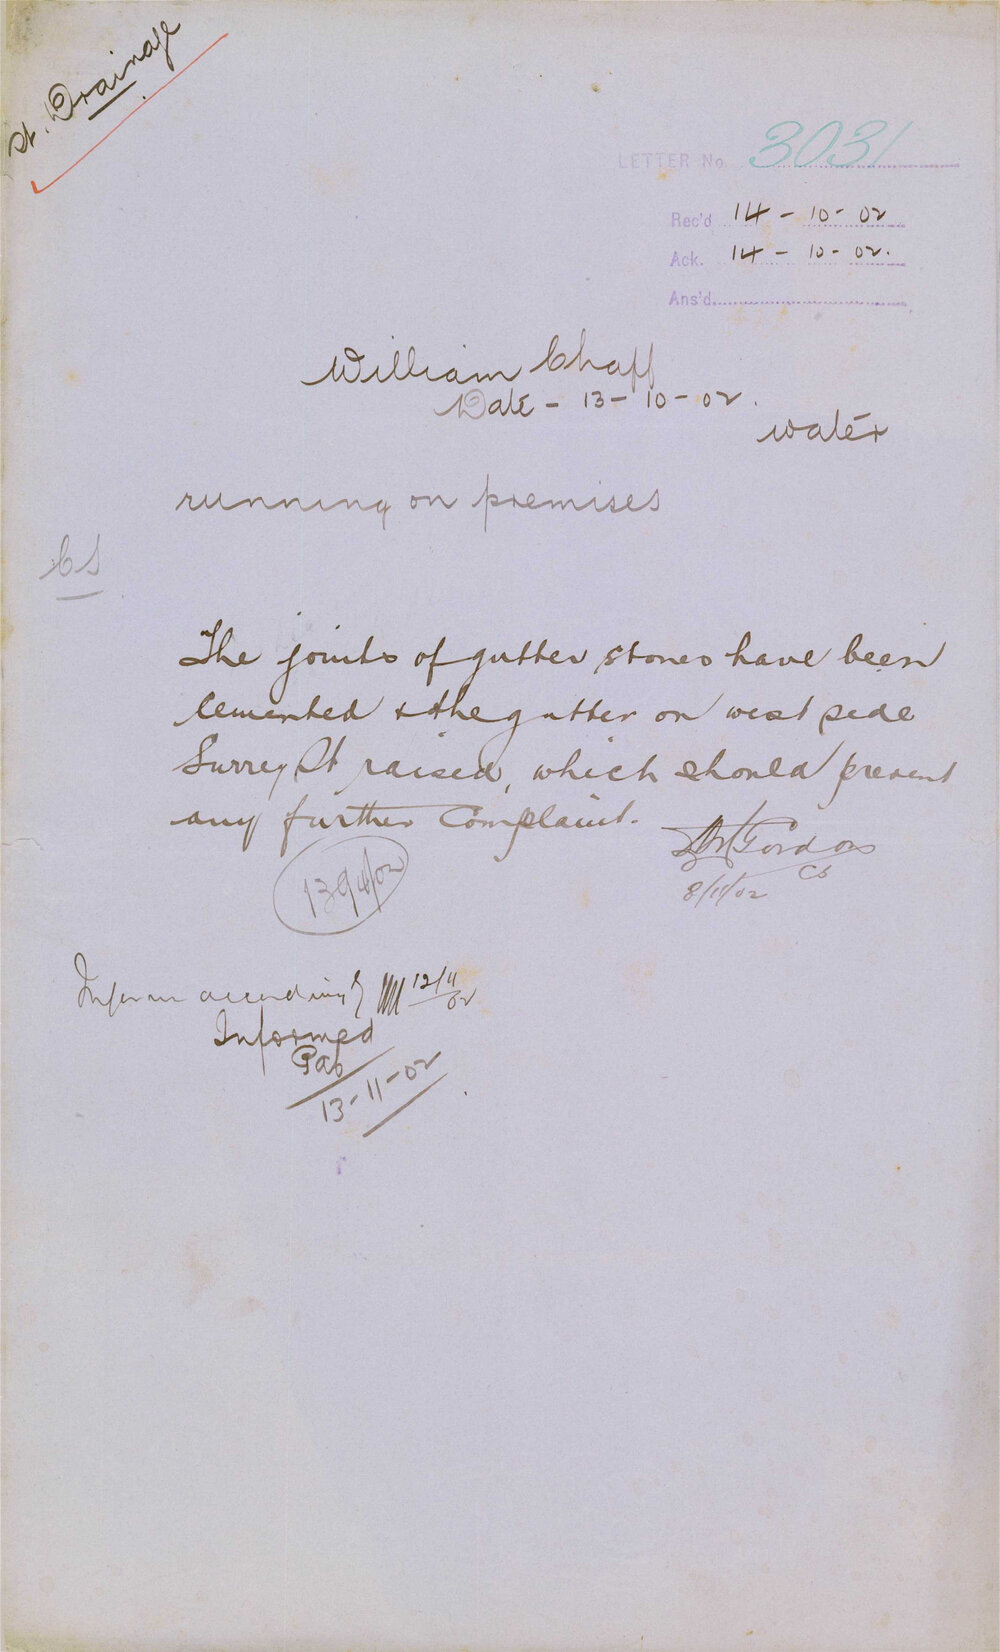 St. Drainage
LETTER No 3031
Rec'd 14 - 10 - 02
Ack. 14 - 10 - 02.
Ans'd
William Chaff
Date - 13 - 10 - 02.
water
running on premises
CS
The joints of gutter stones have been
Cemented & the gutter on west side
Surrey St raised, which should prevent
any further Complaint.
Gordon
CS
8/11/02
1394/02
Inform accordingly 12/11/02
Informed
13-11-02